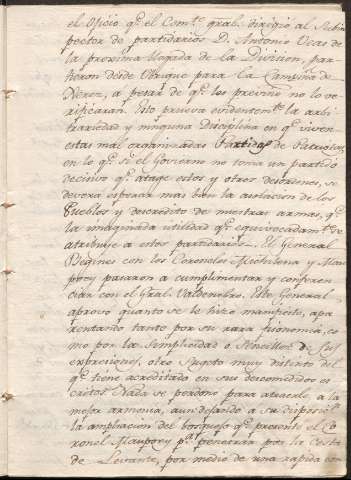 el Oficio q.e el Com.te gral. dirigió al Subin
pector de partidarios D. Antonio Ocas de
la proxima llegada de la Division, par-
tieron desde Ubrique para la Campiña de
Xerez, a pesar de q.e les previno no lo ve-
rificaran. Esto prueva evidentem.te la arbi-
trariedad y ninguna Disciplina en q.e viven
estas mal organizadas Partidas de Patriotas,
en lo q.e si el Govierno no toma un partido
decisivo q.e ataje estos y otros desordenes, se
deverá esperar mas bien la asolacion de los
Pueblos y descredito de nuestras armas, q.e
la imaginada utilidad q.e equivocadam.te se
atribuye a estos partidarios. El General
Begines con los Coroneles Michilena y Mau
prey pasaron a cumplimentar y conferen
ciar con el Gral. Valdenebro. Este General
aprovo quanto se le hizo manifiesto, apa
rentando tanto por su rara fisionomia, co
mo por la simplicidad o sencillez de sus
expresiones, otro Sugeto muy distinto del
q.e tiene acreditado en sus descomedidos es
critos. Nada se perdonó para atraerle a la
mejor armonia, aun dejando a su disposic.n
la ampliacion del bosquejo q.e presentó el Co
ronel Mauprey p.a penetrar por la Costa
de Levante, por medio de una rapida con